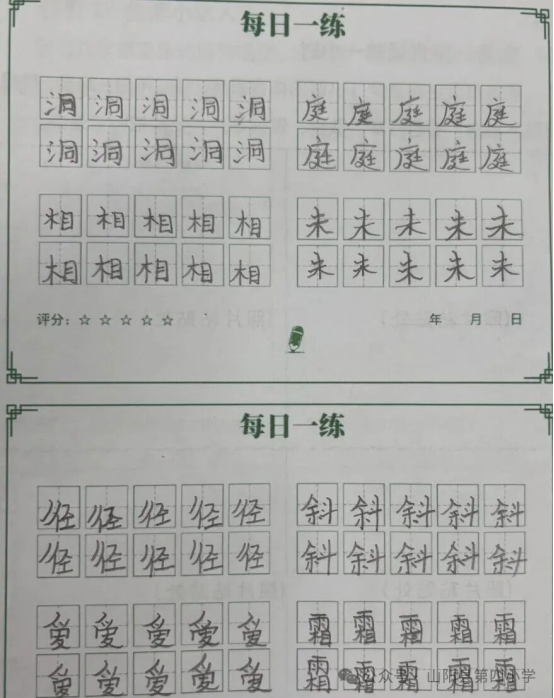 每日一练
洞 洞 洞 洞 洞 庭 庭 庭 庭 庭
洞 洞 洞 洞 洞 庭 庭 庭 庭 庭
相 相 相 相 相 未 未 未 未 未
相 相 相 相 相 未 未 未 未 未
评分：☆ ☆ ☆ ☆ ☆ 年 月 日
每日一练
径 径 径 径 径 斜 斜 斜 斜 斜
径 径 径 径 径 斜 斜 斜 斜 斜
爱 爱 爱 爱 爱 霜 霜 霜 霜 霜
爱 爱 爱 爱 爱 霜 霜 霜 霜 霜
公众号 山阳县第四小学